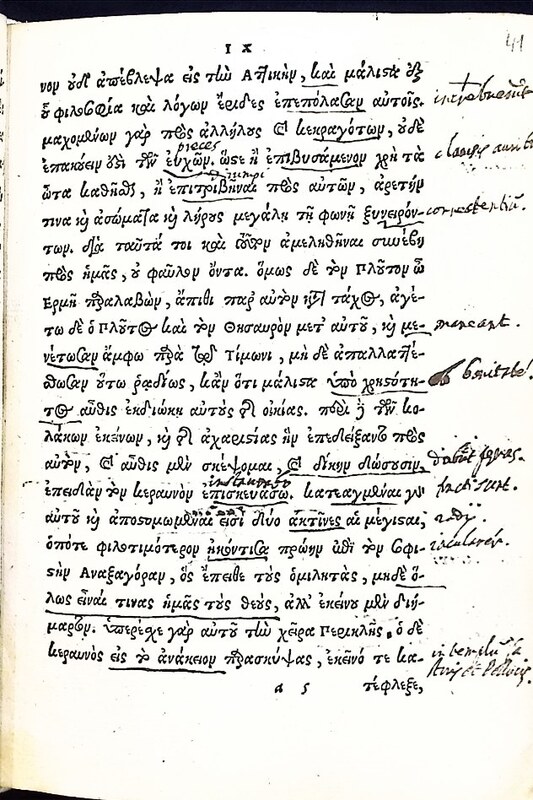 IX
41
νον οὐδὲ ἀπέβλεψα εἰς τὴν Ἀττικὴν, καὶ μάλιστα ἐξ
οὗ φιλοσοφία καὶ λόγων ἔριδες ἐπεπόλασαν αὐτοῖς.
μαχομένων γὰρ πρὸς ἀλλήλους καὶ κεκραγότων, οὐδὲ
preces
ἐπακούειν ἔστι τῶν εὐχῶν. ὥστε ἢ ἐπιβυσάμενον χρὴ τὰ
ὦτα καθῆσθαι, ἢ ἐπιτριβῆναι πρὸς αὐτῶν, ἀρετήν
τινα καὶ ἀσώματα καὶ λήρους μεγάλῃ τῇ φωνῇ ξυνειρόν-
των. διὰ ταῦτά τοι καὶ τοῦτον ἀμεληθῆναι συνέβη
πρὸς ἡμᾶς, οὐ φαῦλον ὄντα. ὅμως δὲ τὸν Πλοῦτον ὦ
Ἑρμῆ παραλαβὼν, ἄπιθι παρ' αὐτὸν κατὰ τάχος, ἀγέ-
τω δὲ ὁ Πλοῦτος καὶ τὸν Θησαυρὸν μετ' αὐτοῦ, καὶ με-
maneant.
νέτωσαν ἄμφω παρὰ τῷ Τίμωνι, μὴ δὲ ἀπαλλαττέ-
σθωσαν οὕτω ῥᾳδίως, κἂν ὅτι μάλιστα ὑπὸ χρηστότη-
τος αὖθις ἐκδιώκῃ αὐτοὺς τῆς οἰκίας. περὶ δὲ τῶν κο-
λάκων ἐκείνων, καὶ τῆς ἀχαριστίας ἣν ἐπεδείξαντο πρὸς
αὐτὸν, καὶ αὖθις μὲν σκέψομαι, καὶ δίκην δώσουσιν,
ἐπειδὰν τὸν κεραυνὸν ἐπισκευάσω. κατεαγμέναι γὰρ
αὐτοῦ καὶ ἀποστομωμέναι εἰσὶ δύο ἀκτῖνες αἱ μέγισται,
ὁπότε φιλοτιμότερον ἠκόντισα πρώην ἐπὶ τὸν σοφι-
στὴν Ἀναξαγόραν, ὃς ἔπειθε τοὺς ὁμιλητὰς, μηδὲ ὅ-
λως εἶναί τινας ἡμᾶς τοὺς θεοὺς, ἀλλ' ἐκείνου μὲν διή-
μαρτον. ὑπερέσχε γὰρ αὐτοῦ τὴν χεῖρα Περικλῆς. ὁ δὲ
κεραυνὸς εἰς τὸ ἀνάκειον παρασκήψας, ἐκεῖνό τε κα-
a ς τέφλεξε,